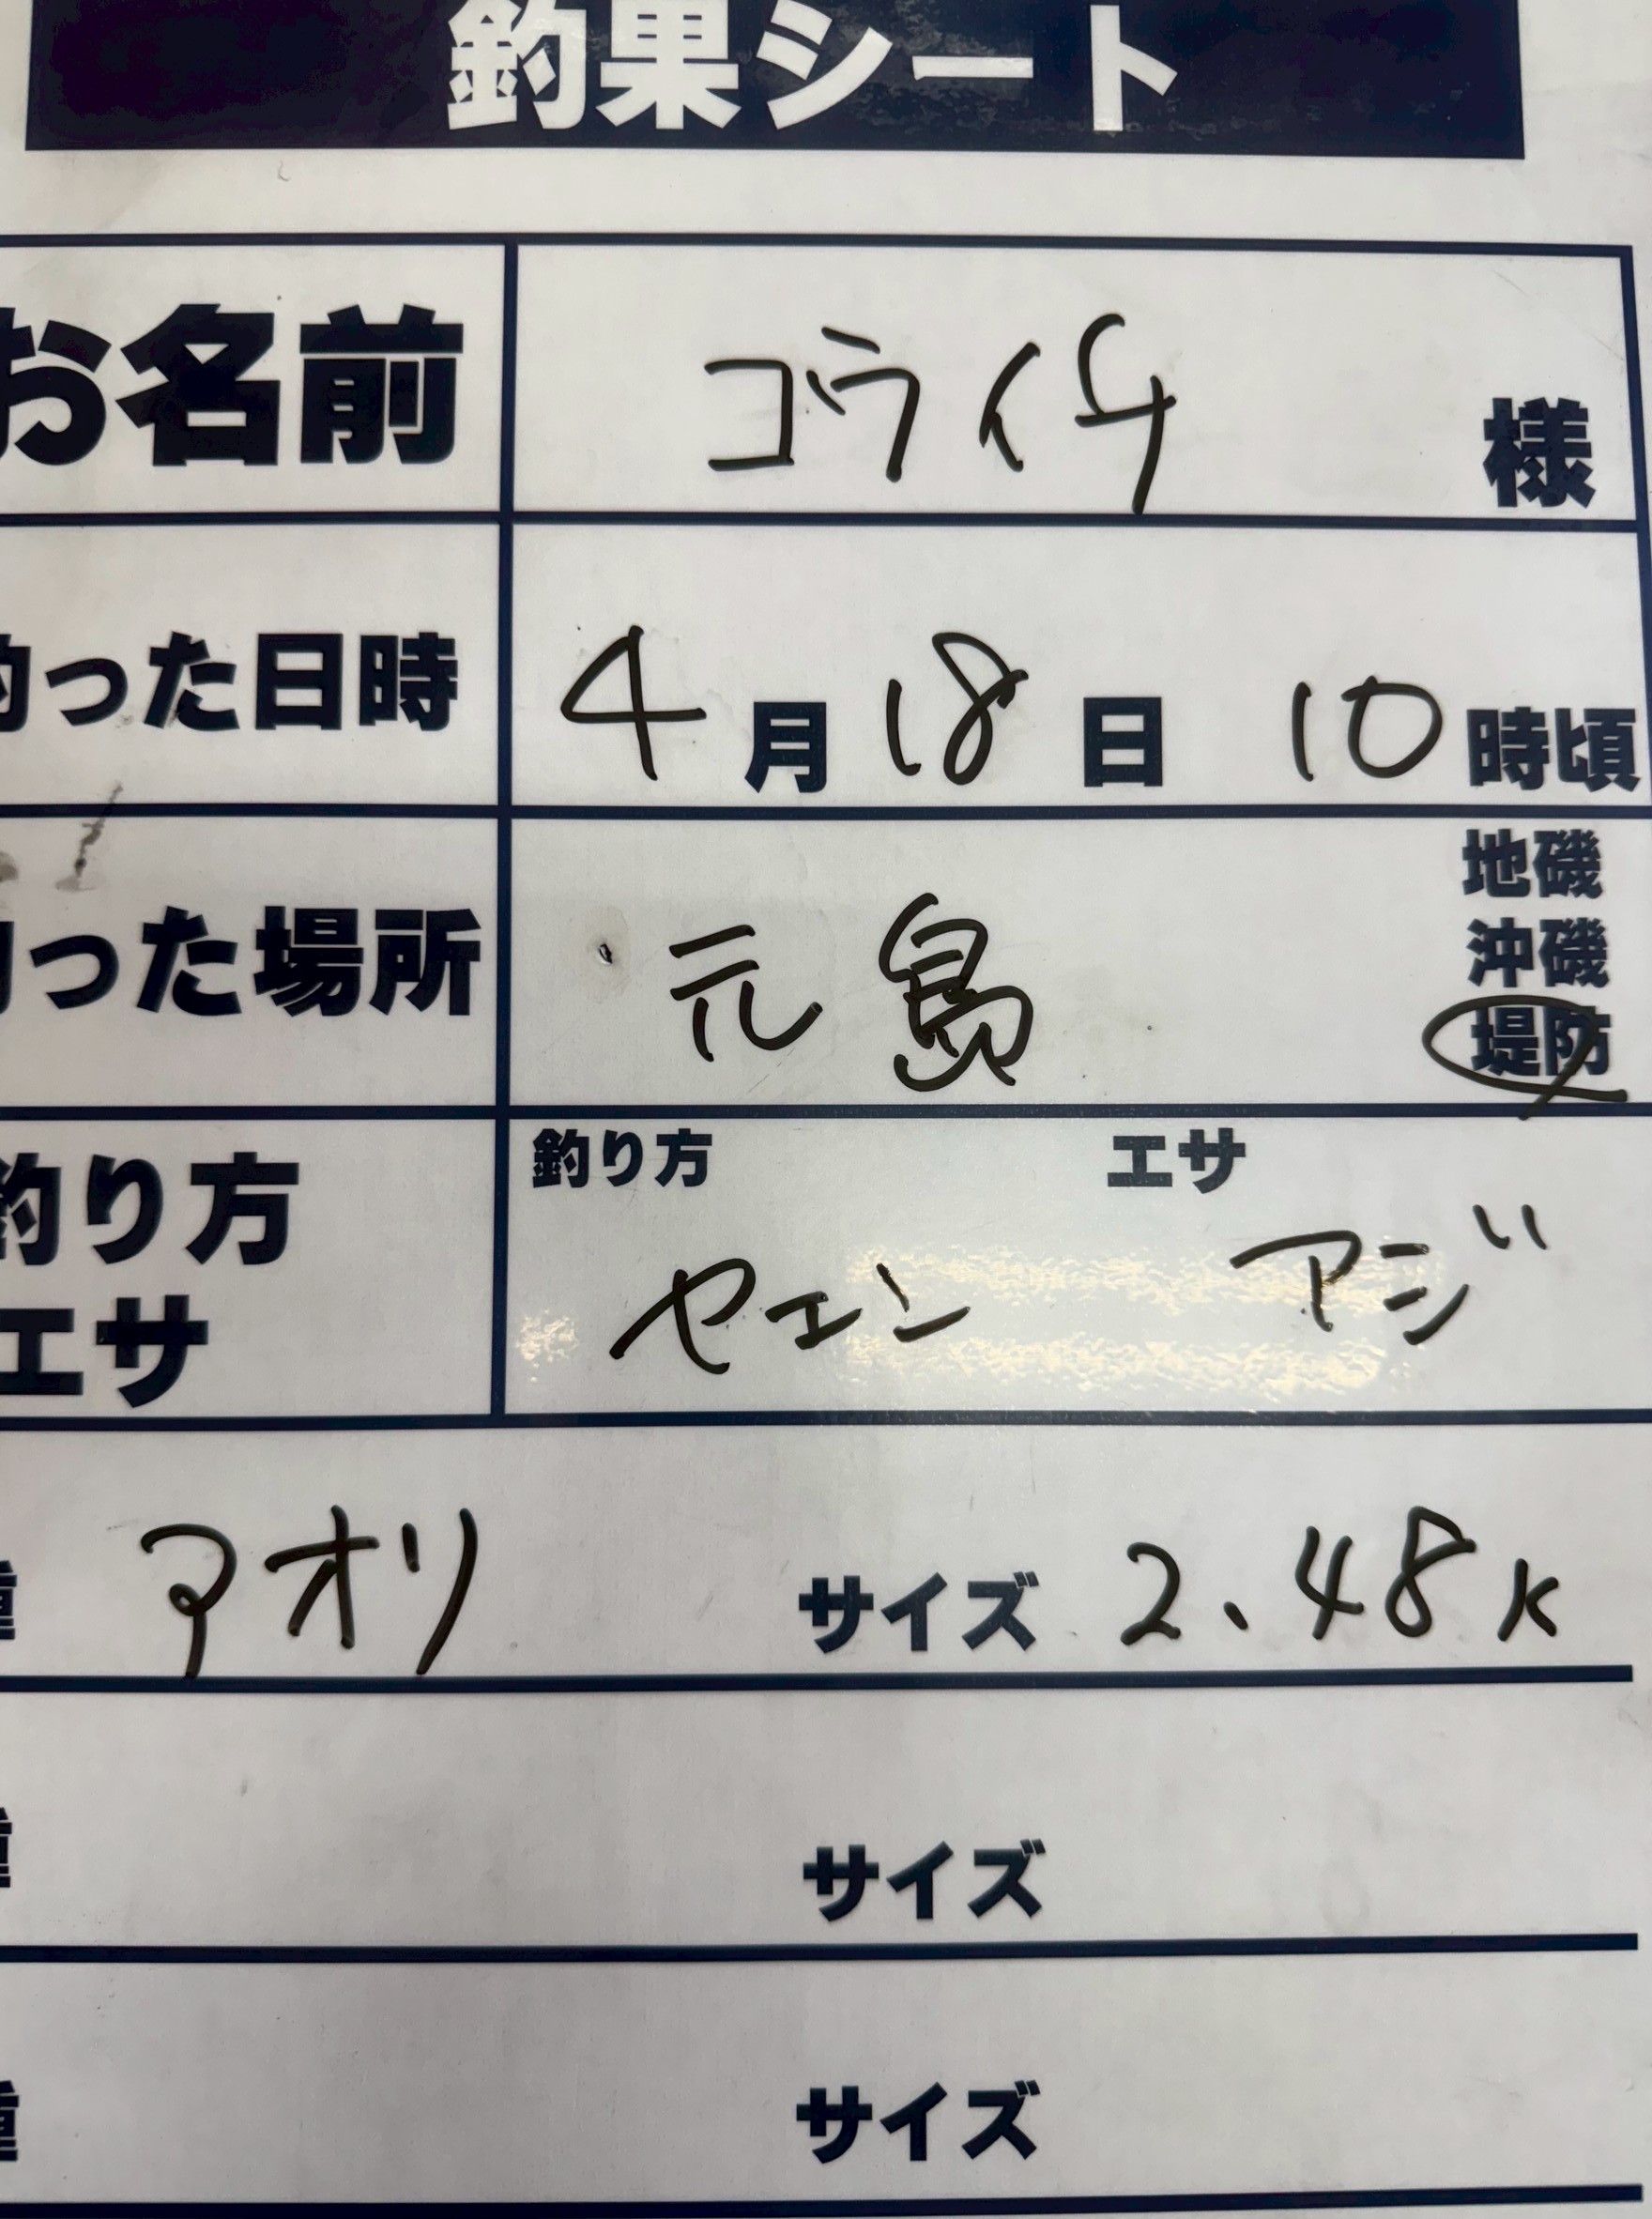 釣果シート
お名前 コウイチ 様
釣った日時 4月18日 10時頃
地磯
沖磯
釣った場所 元島 堤防
釣り方 エサ
釣り方 ヤエン アジ
エサ
種 アオリ サイズ 2.48K
種 サイズ
種 サイズ